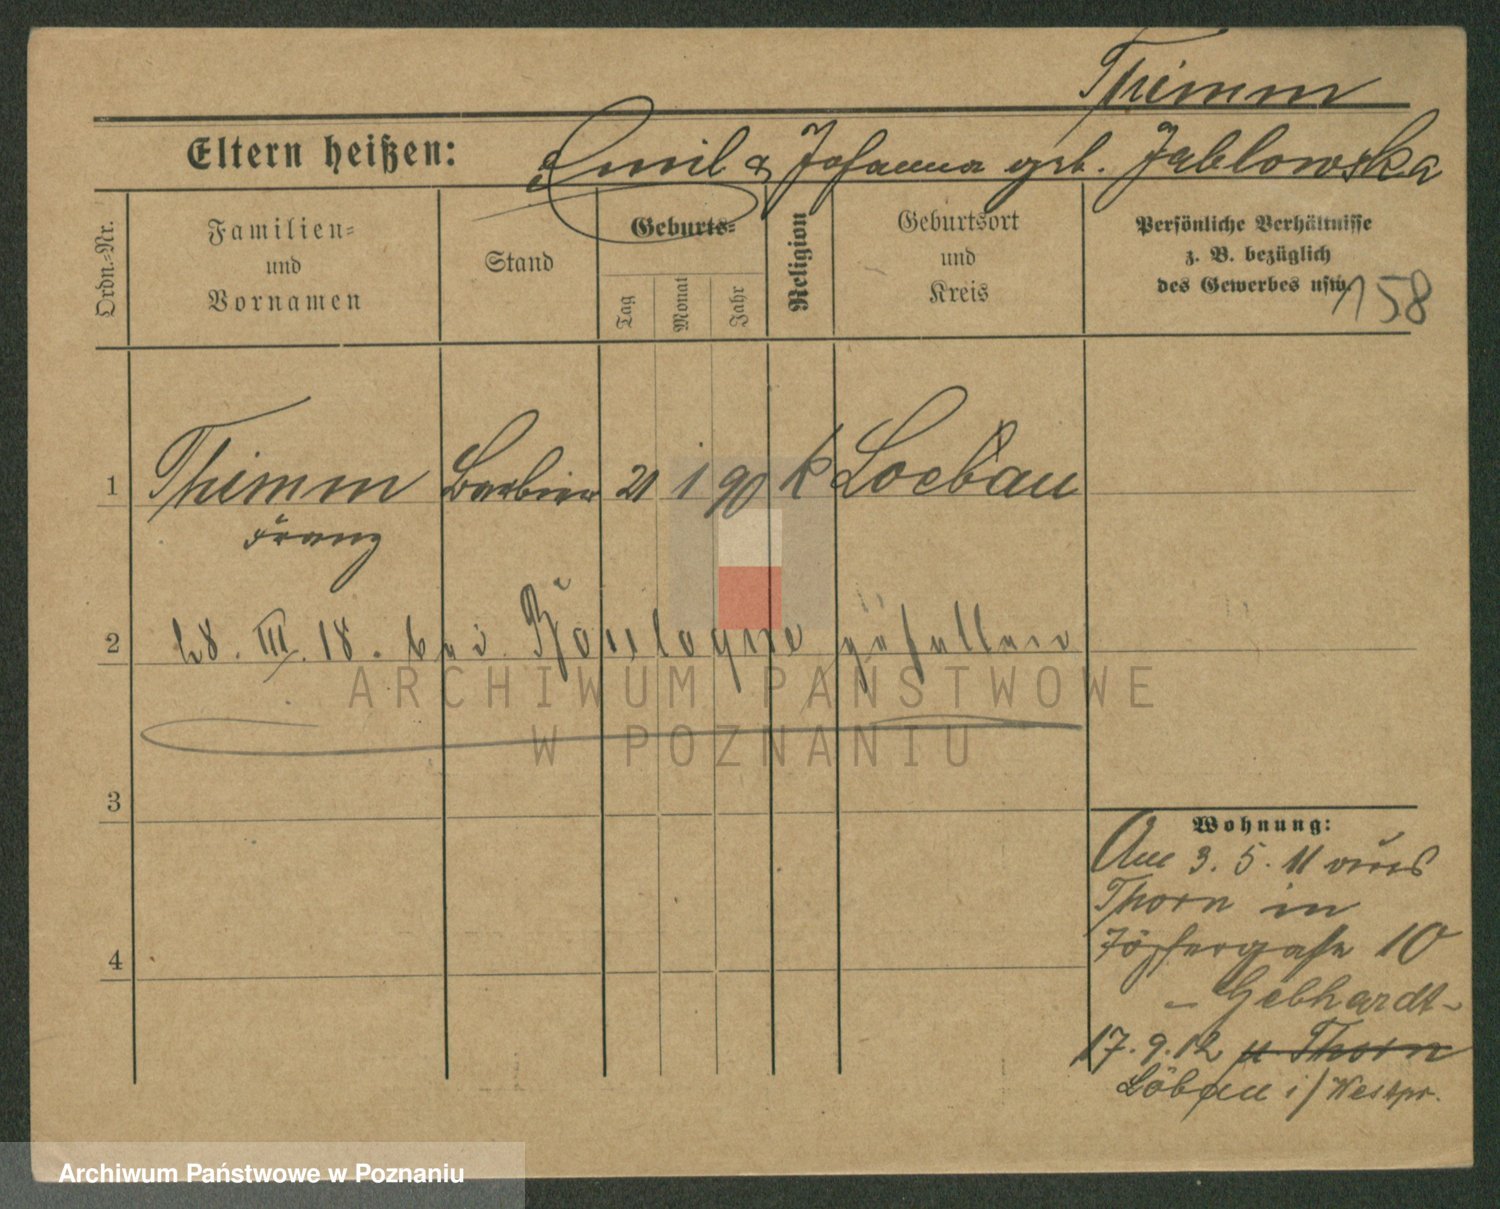 Thimm
Eltern heißen: Emil & Johanna geb. Jablowska
Ordn.-Nr.
Familien- und Vornamen
Stand
Geburts-
Tag
Monat
Jahr
Religion
Geburtsort und Kreis
Persönliche Verhältnisse
z. B. bezüglich
des Gewerbes usw.
158
1 Thimm Barbier 21 1 90 k Loebau
Franz
2 28. III. 18. bei Boulogne gefallen
ARCHIWUM PAŃSTWOWE
W POZNANIU
3
4
Wohnung:
Am 3. 5. 11 aus
Thorn in
Töpfergasse 10
- Gebhardt -
17. 9. 12 n Thorn
Löbau i/Westpr.
Archiwum Państwowe w Poznaniu